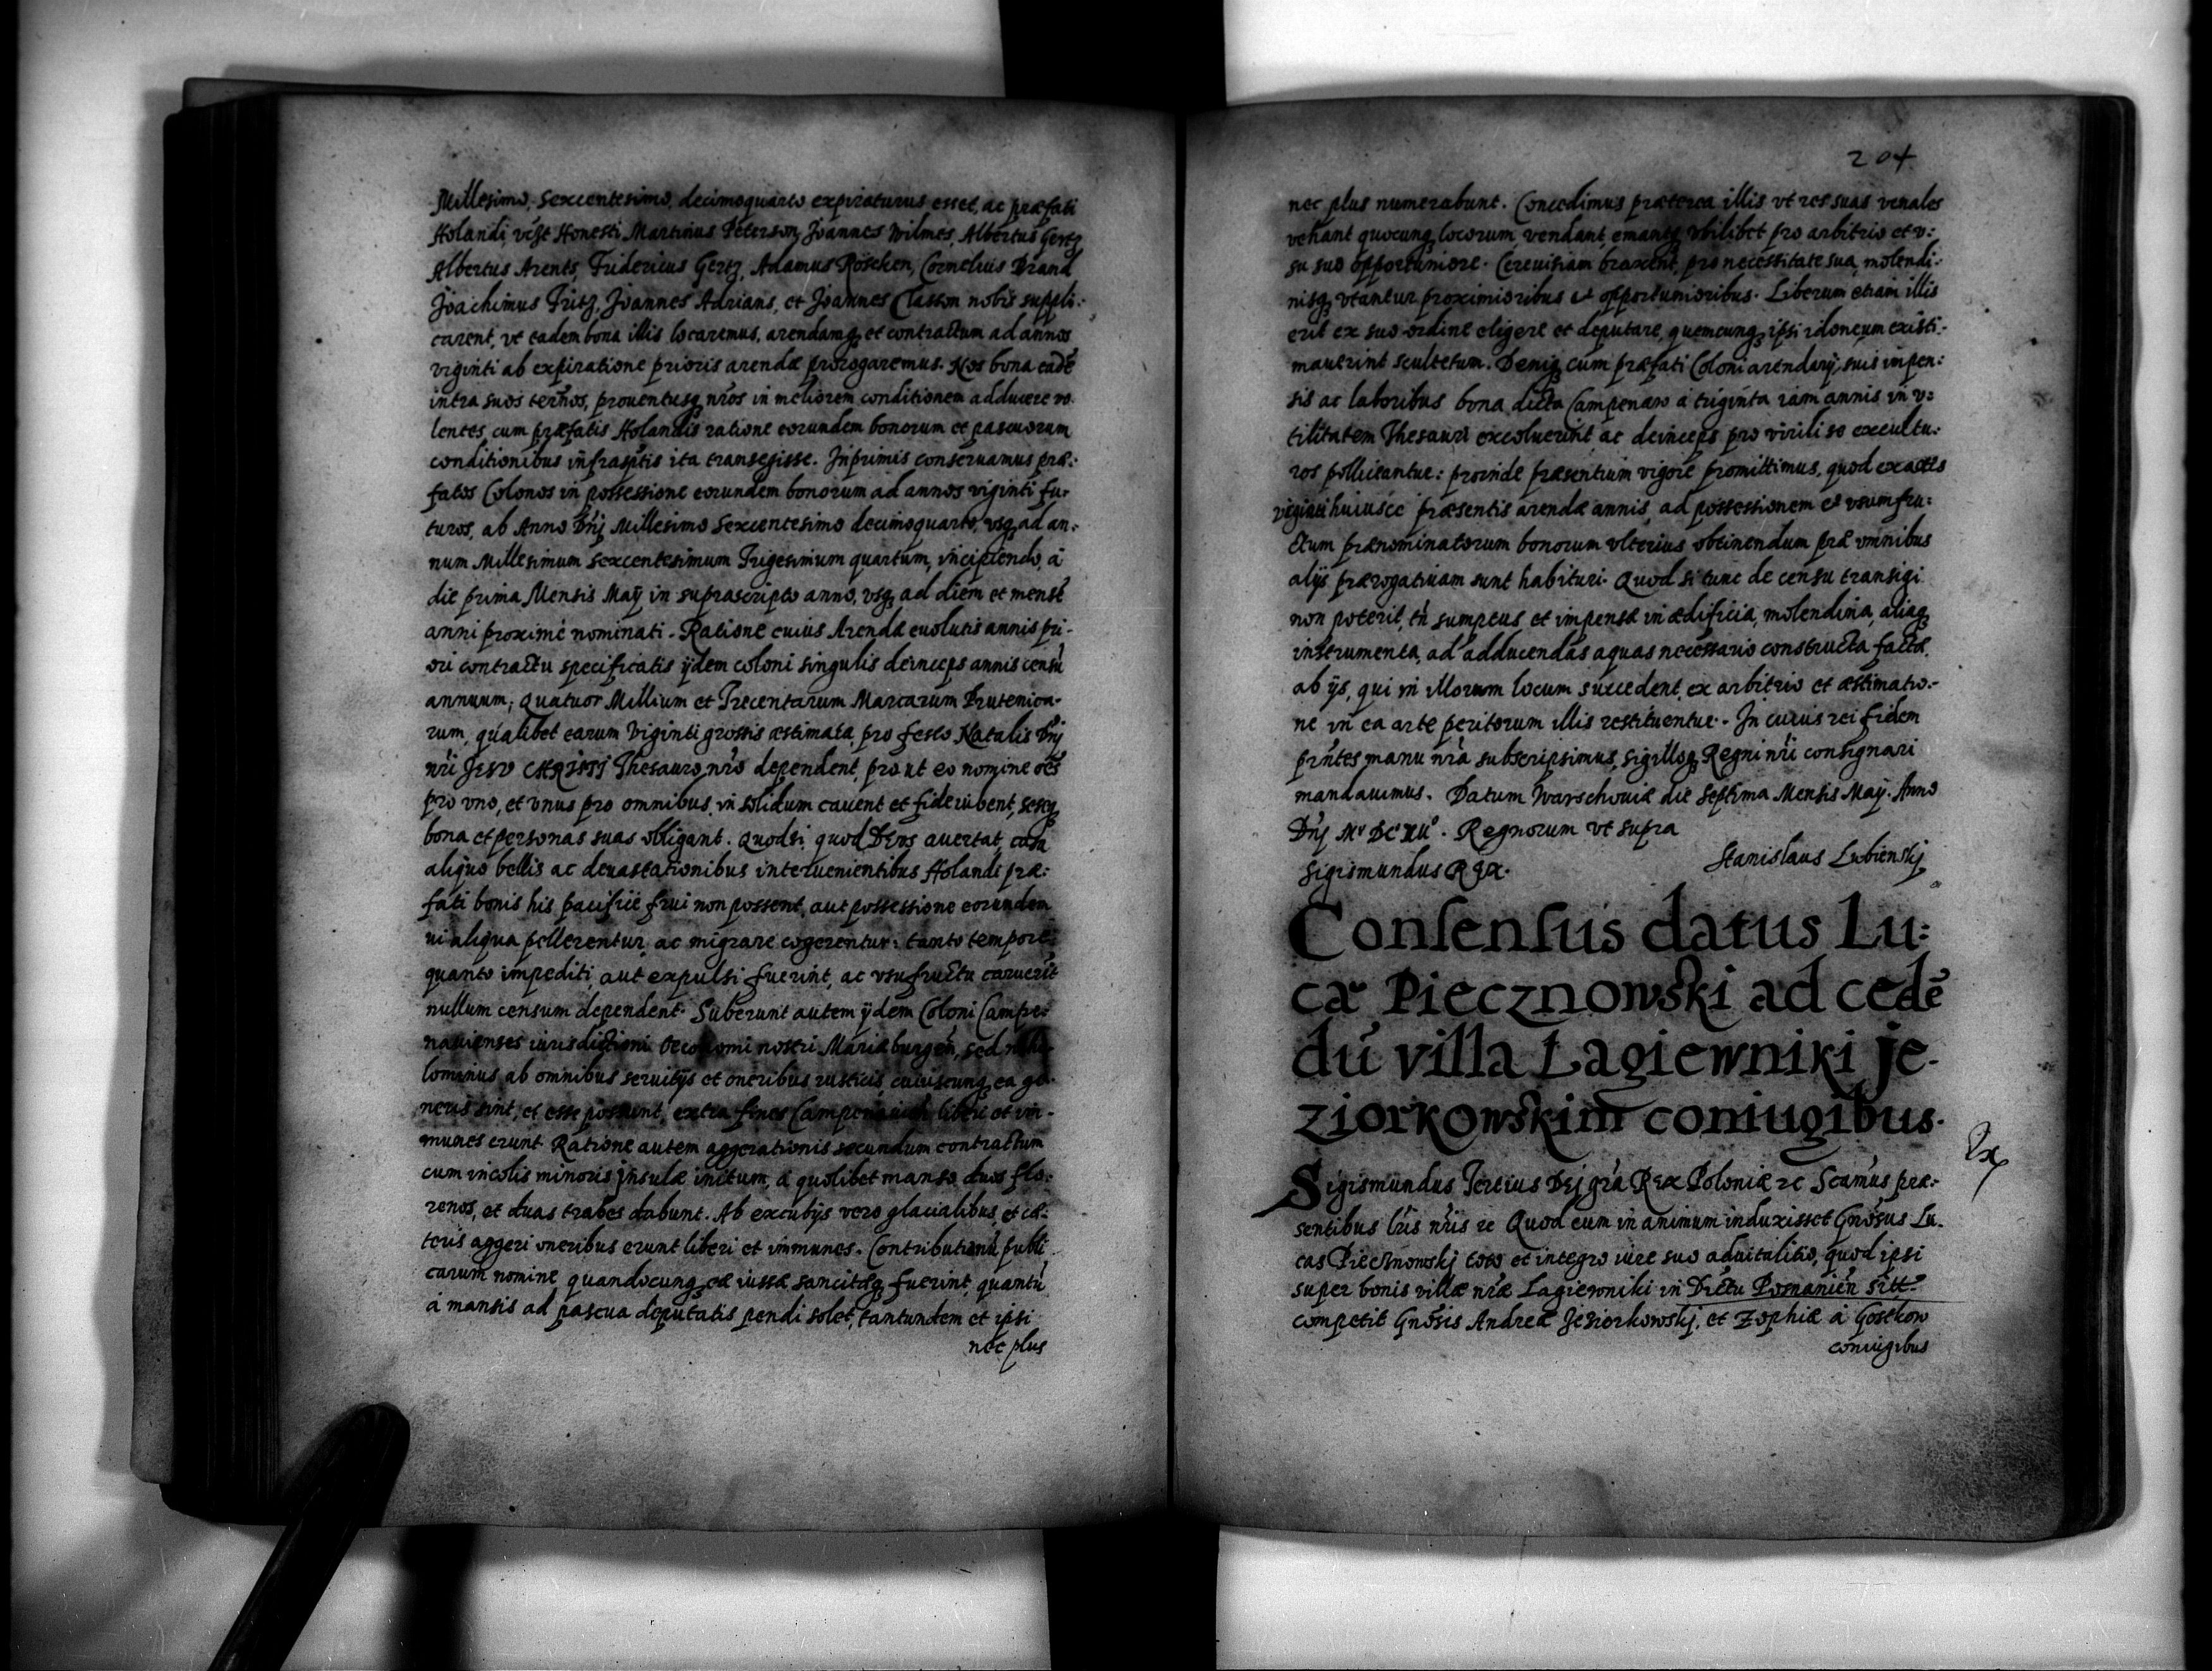 Millesimo, Sexcentesimo, decimoquarto expiraturus esset, ac præfati
Holandi, vict Honesti Martinus Peterson, Joannes Wilmes, Albertus Gertz
Albertus Arents, Fridericus Gertz, Adamus Röseken, Cornelius Brand
Joachimus Fritz, Joannes Adrians, et Joannes Classon nobis suppli:
carent, vt eadem bona illis locaremus, arendamq et contractum ad annos
viginti ab expiratione prioris arendæ prorogaremus. Nos bona eadē
intra suos termos, prouentusq nros in meliorem conditionem adducere vo
lentes, cum præfatis Holandis ratione eorundem bonorum et pascuorum
conditionibus infrasptis ita transegisse. Inprimis conseruamus præ:
fatos Colonos in possessione eorundem bonorum ad annos viginti fu-
turos, ab Anno Dnj Millesimo Sexcentesimo decimoquarto, vsq ad an:
num Millesimum sexcentesimum Trigesimum quartum, incipiendo, á
die prima Mensis Maij in suprascripto anno, vsq ad diem et mensē
anni proximé nominati. Ratione cuius Arendæ euolutis annis pri-
ori contractu specificatis ijdem coloni singulis deinceps annis censū
annuum, Quatuor Millium et Trecentarum Marcarum Prutenica-
rum, qualibet earum Viginti grossis æstimata, pro festo Natalis Dnj
nri JESV CHRISTJ Thesauro nro dependent, pro ut eo nomine oēs
pro vno, et vnus pro omnibus in solidum cauent et fideiubent, seseq
bona et personas suas obligant. Quodsi, quod DEVS auertat, casu
aliquo bellis ac deuastationibus interuenientibus Holandi præ:
fati bonis his pacificé frui non possent, aut possessione eorundem
ui aliqua pellerentur, ac migrare cogerentur: tanto tempore,
quanto impediti, aut expulsi fuerint, ac vsufructu caruerīt
nullum censum dependent. Suberunt autem ijdem Coloni Campe:
nauienses iurisdictioni Oeconomi nostri Mariæburgen, sed nihi
lominus ab omnibus seruitijs et oneribus rusticis cuiuscunq ea ge-
neris sint, et esse possunt, extra fines Campenauien liberi et im-
munes erunt. Ratione autem aggerationis secundum contractum
cum incolis minoris Jnsulæ initum, á quolibet manso duos flo:
renos, et duas trabes dabunt. Ab excubijs vero glacialibus, et cæ:
teris aggeri oneribus erunt liberi et immunes. Contributionū publi
carum nomine quandocunq eæ iussæ sancitæq fuerint, quantū
á mansis ad pascua deputatis pendi solet, tantundem et ipsi
nec plus
204
nec plus numerabunt. Concedimus præterea illis vt res suas venales
vehant quocunq locorum, vendant, emantq vbilibet pro arbitrio et v:
su suo opportuniore. Cereuisiam braxent, pro necessitate sua, molendi:
nisq vtantur proximioribus et opportunioribus. Liberum etiam illis
erit ex suo ordine eligere et deputare, quemcunq ipsi idoneum existi-
mauerint scultetum. Deniq cum præfati Coloni arendarij, suis impen:
sis ac laboribus bona dicta Campenaw a triginta iam annis in v:
tilitatem Thesauri excoluerint ac deinceps pro virili so excultu:
ros polliceantur: proinde præsentium vigore promittimus, quod exactis
viginti huiusce præsentis arendæ annis, ad possessionem et vsumfru:
ctum prænominatorum bonorum vlterius obtinendum præ omnibus
alijs prærogatiuam sunt habituri. Quod si tunc de censu transigi
non poterit, tn sumptus et impensæ in ædificia, molendina, aliaq
instrumenta, ad adducendas aquas necessario constructa facta,
ab ijs, qui in illorum locum succedent, ex arbitrio et æstimatio:
ne in ea arte peritorum illis restituentur. In cuius rei fidem
pntes manu nra subscripsimus, sigilloq Regni nri consignari
mandauimus. Datum Warschouiæ die Septima Mensis Maij. Anno
Regnorum vt supra
Sigismundus REX.
Stanislaus Lubienskj
Consensus datus Lu:
cæ Piecznowski ad cedē
dū villa Lagiewniki Je-
ziorkowskim coniugibus.
Sigismundus Tertius Dej gra REX Poloniæ etc Scamus præ-
sentibus lris nris etc Quod cum in animum induxisset Gnosus Lu-
cas Piecznowskj toto et integro iure suo aduitalitio, quod ipsi
super bonis villæ nræ Lagiewniki in Districtu Posnanien sitt
competit Gnosis Andreæ Jeziorkowskj, et Zophiæ á Gostkow
coniugibus